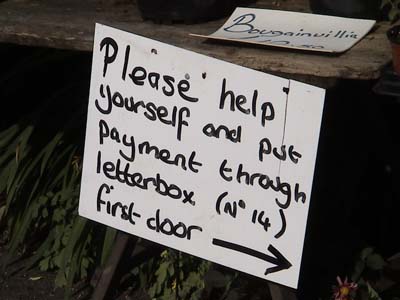 Bougainvillia
Please help
yourself and put
payment through
letterbox (No 14)
first door